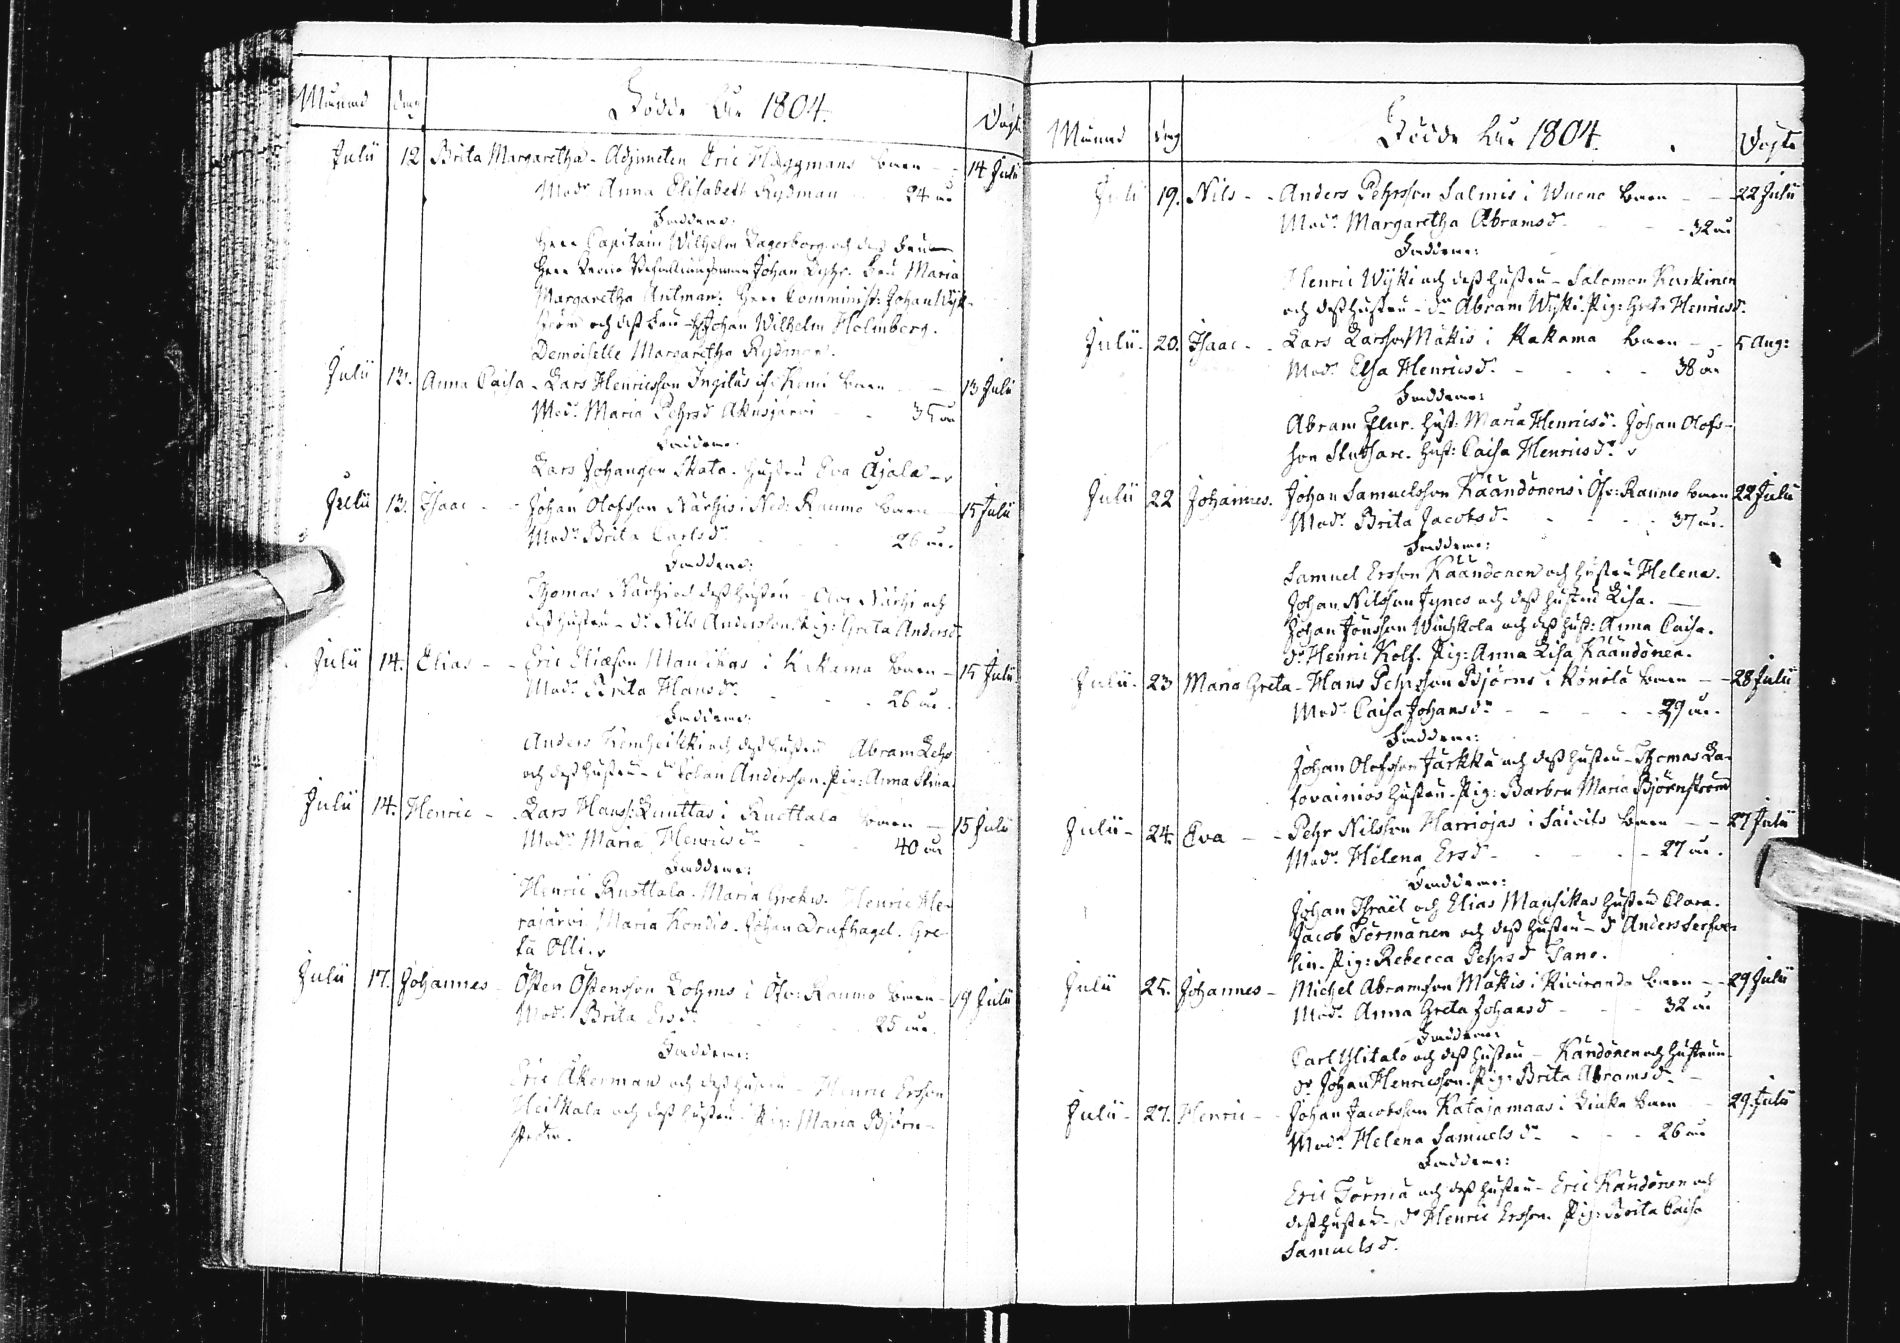 Månad dag Födde Åhr 1804. Döpte
Julii 12 Brita Margaretha - Adjuncten Eric Häggmans barn - 14 Julii
Mod: Anna Elisabeth Rydman 24 år
Faddrar:
Herr Capitain Wilhelm Lagerborg och dess Fru
Herr Johan Fru Maria
Margaretha Antman. Herr Comminist: Johan Wijk-
ström och dess Fru - Johan Wilhelm Holmberg.
Demoiselle Margaretha Rydman.
Julii 13. Anna Caisa - Lars Henricsson Ingilus i Kemi barn - 13 Julii
Mod: Maria Pehrsd Akusjärvi 35 år
Faddrar:
Lars Johansson Skata. hustru Eva Ajala -
Julii 13. Isaac - Johan Olofsson Närhis i Ned: Raumo barn 15 Julii
Mod: Brita Carlsd: 26 år.
Faddrar:
Thomas Närhi och dess hustru - Olof Närhi och
dess hustru - d: Nils Andersson Pig: Greta Andersd:
Julii 14. Elias - Eric Eliæson Mansikas i Kakama barn - 15 Julii
Mod: Brita Hansd: 26 år.
Faddrar:
Anders och dess hustru Abram
och dess hustru - d: Johan Andersson. Pig: Anna Stina
Julii 14. Henric - Lars Hanss: i Ruottala barn - 15 Julii
Mod: Maria Henricsd: 40 år
Faddrar:
Henric Ruottala. Maria Henric
Maria Kondis. Johan Drufhagel. Gre-
ta Olli.
Julii 17. Johannes - Östen Östensson Lohms i Öfv: Raumo barn - 19 Julii
Mod: Brita Ersd: 25 år.
Faddrar:
Eric Åkerman och dess hustru - Henric Ersson
Heikkala och dess hustru Pig: Maria Björn-
ström.
Månad dag Födde Åhr 1804. Döpte
Julii 19. Nils - Anders Pehrsson Salmis i Wuono barn - 22 Julii
Mod: Margaretha Abramsd: 32 år
Faddrar:
Henric Wÿki och dess hustru - Salomon Karkinen
och dess hustru - d: Abram Wÿki. Pig: Greta Henricsd:
Julii - 20. Isaac - Lars Larsson Mäkis i Kakama barn - 5 Aug:
Mod: Elsa Henricsd: 38 år
Faddrar:
Abram hust: Maria Henricsd: Johan Olofs-
son hust: Caisa Henricsd:
Julii 22 Johannes. Johan Samuelsson Käändönens i Öfv: Raumo barn 22 Julii
Mod: Brita Jacobsd: 37 år.
Faddrar:
Samuel Ersson Käändönen och hustru Helena.
Johan Nilsson Jynes och dess hustru Lisa.
Johan Jönsson och dess hust: Anna Caisa.
d: Henric Kolf. Pig: Anna Lisa Käändönen.
Julii - 23 Maria Greta - Hans Pehrsson Björns i Könölä barn - 28 Julii
Mod: Caisa Johansd: 29 år.
Faddrar:
Johan Olofsson Jarkka och dess hustru - Thomas La-
hustru - Pig: Barbru Maria Björnström
Julii - 24. Eva - Pehr Nilsson Harriojas i Säivis barn - 27 Julii
Mod: Helena Ersd: 27 år.
Faddrar:
Johan Israël och Elias Mansikas hustru Clara.
Jacob Törmänen och dess hustru - d: Anders
Pig: Rebecca Pehrsd Tano.
Julii 25. Johannes - Michel Abramsson Mäkis i Kiviranda barn - 29 Julii
Mod: Anna Greta Johansd 32 år
Faddrar:
Carl Ylitalo och dess hustru - Kändönen och hustrun -
d: Johan Henricsson. Pig: Brita Abramsd:
Julii - 27. Henric - Johan Jacobsson Katajamaas i Liakka barn 29 Julii
Mod: Helena Samuelsd: 26 år
Faddrar:
Eric Törmä och dess hustru - Eric Kändönen och
dess hustru - d: Henric Ersson. Pig: Brita Caisa
Samuelsd.